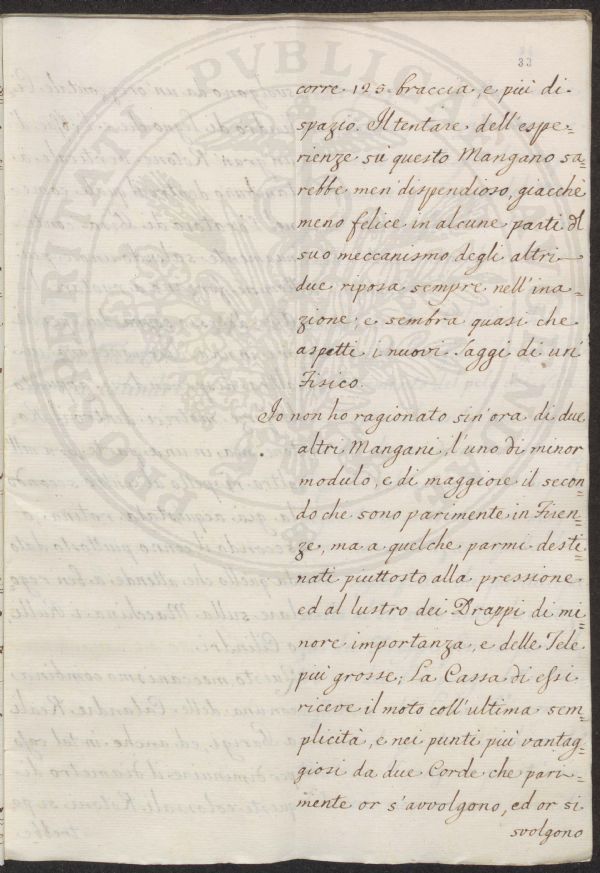 33
corre 125 braccia, e più di
spazio. Il tentare dell'espe=
rienze sù questo Mangano sa=
rebbe men dispendioso, giacchè
meno felice in alcune parti del
suo meccanismo degli altri
due riposa sempre nell'ina=
zione, e sembra quasi che
aspetti i nuovi Saggi di un
Fisico.
Io non ho ragionato sin'ora di due
altri Mangani, l'uno di minor
modulo, e di maggiore il secon=
do che sono parimente in Firen=
ze, ma a quelche parmi desti=
nati piuttosto alla pressione
ed al lustro dei Drappi di mi=
nore importanza, e delle Tele
più grosse; La Cassa di essi
riceve il moto coll'ultima sem=
plicità, e nei punti più vantag=
giosi da due Corde che pari=
mente or s'avvolgono, ed or si
svolgono